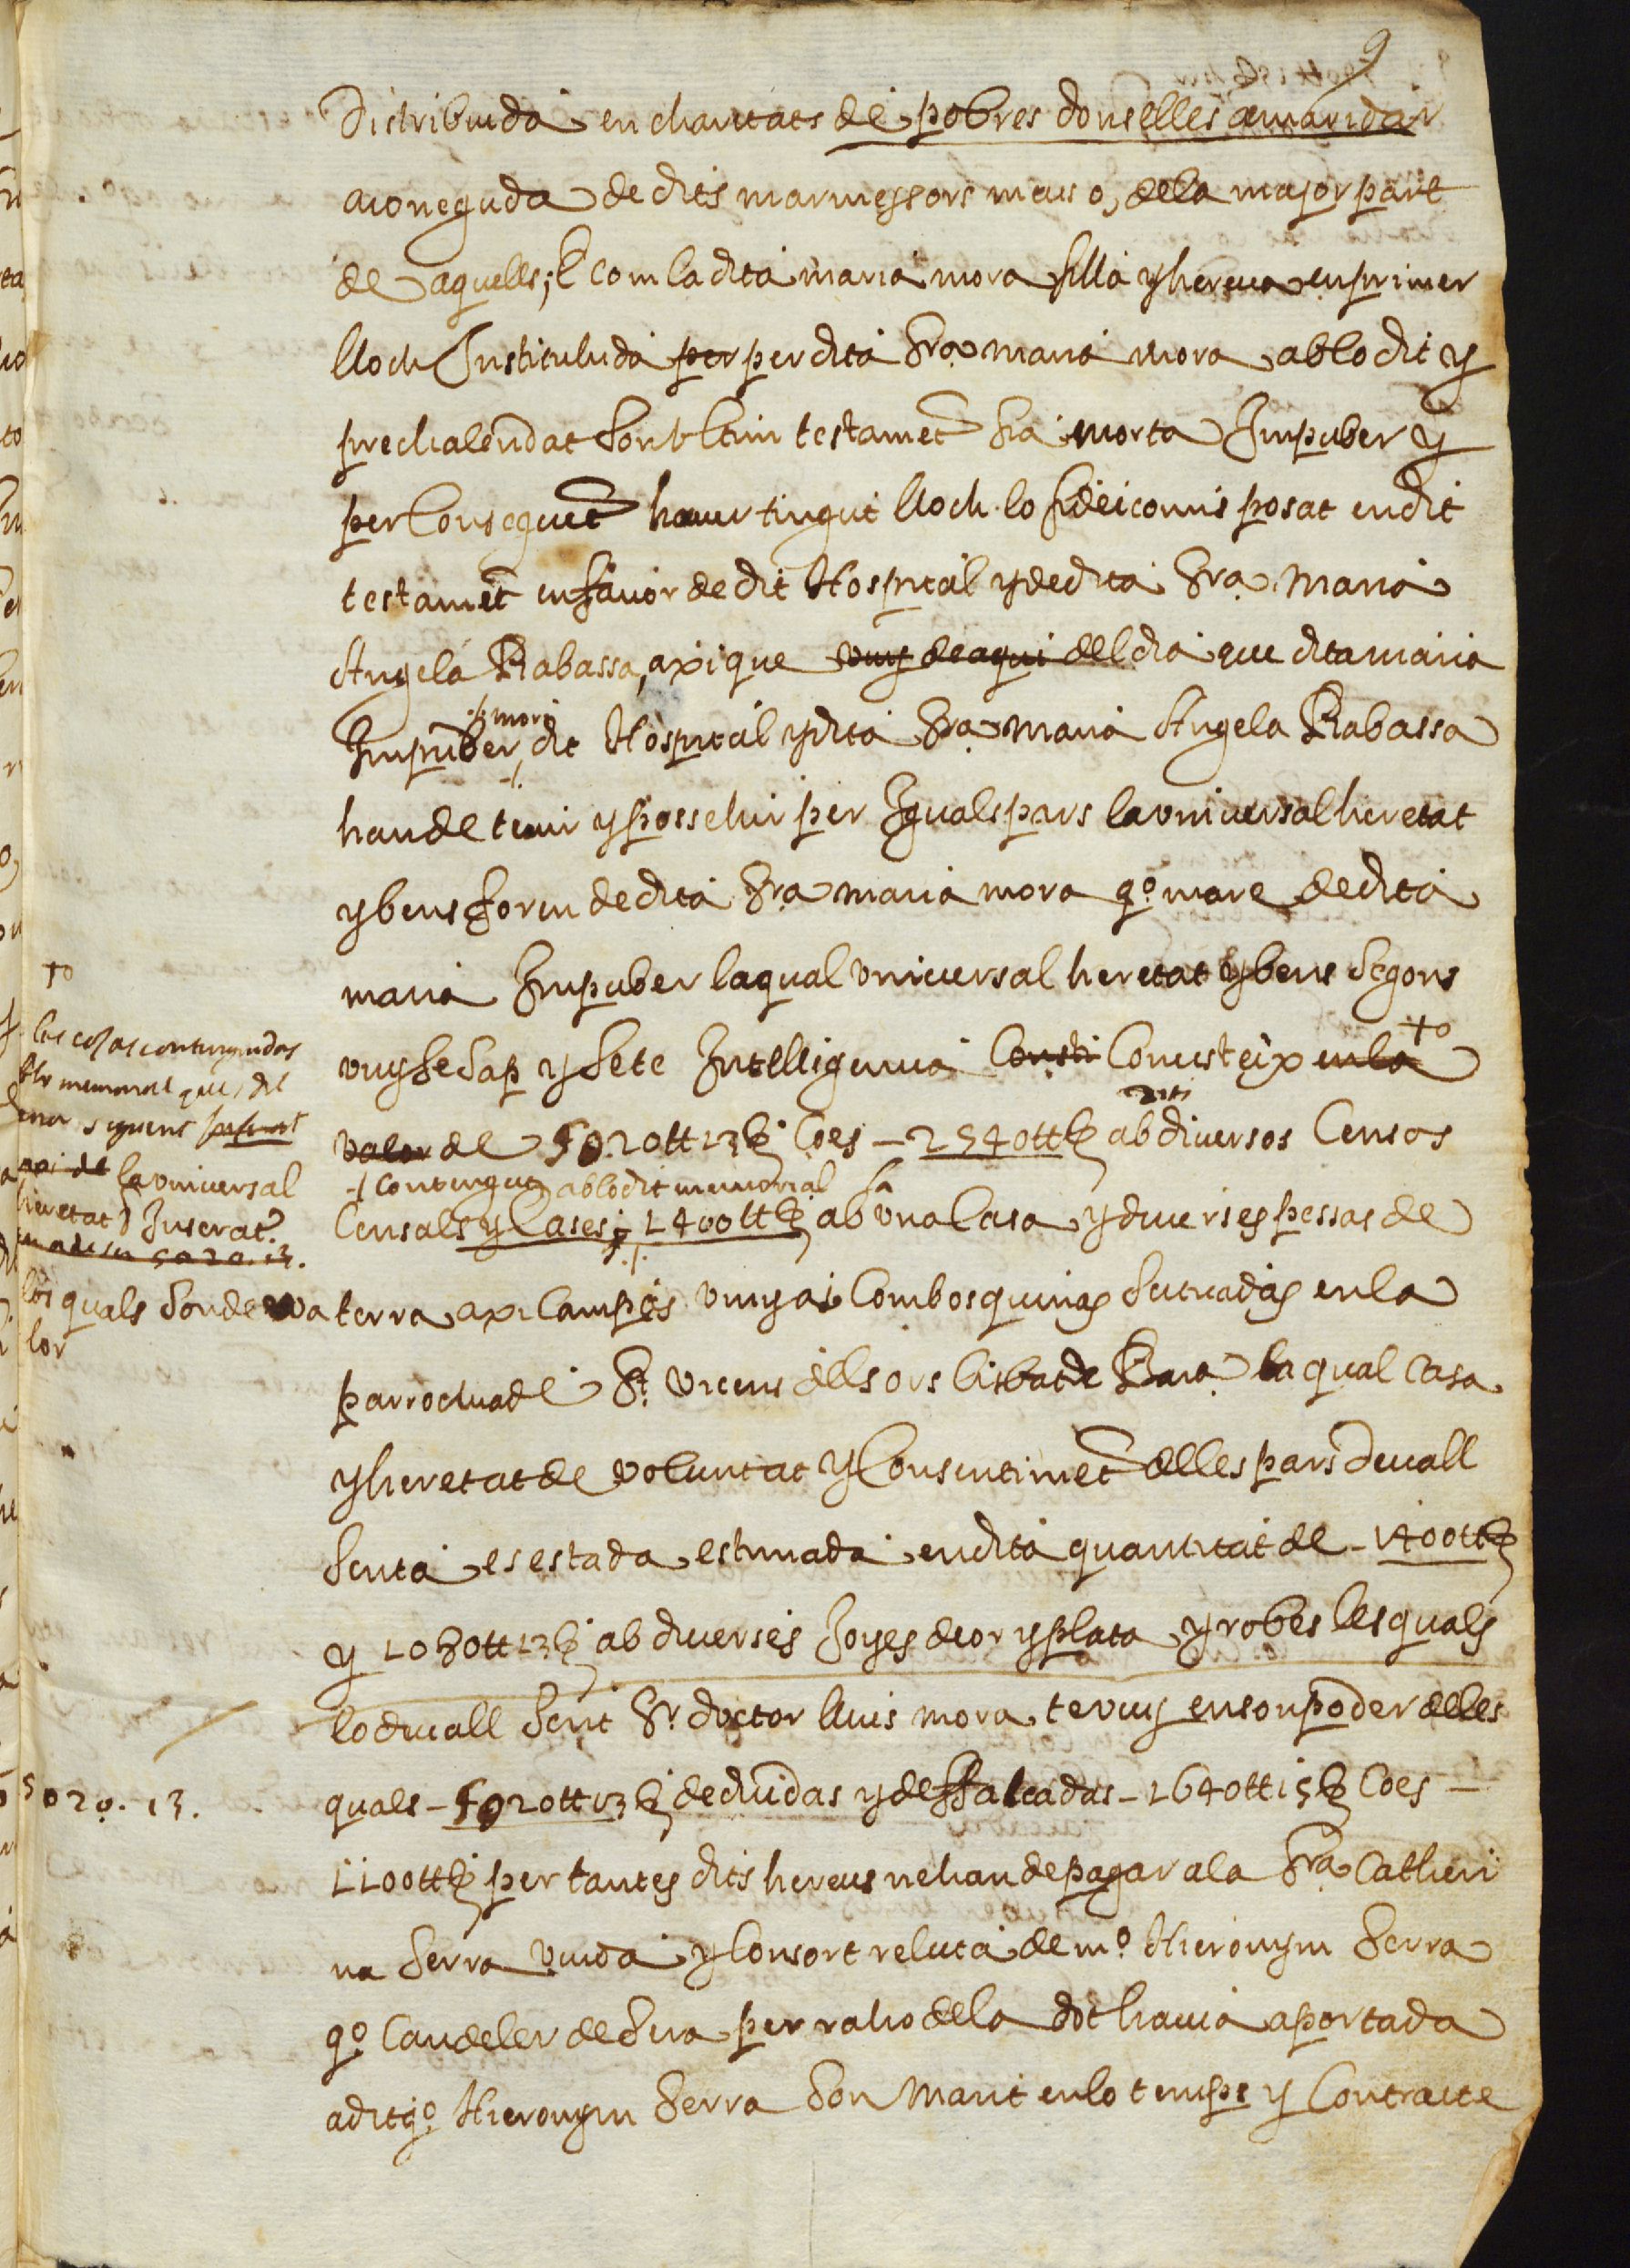 9
Distribuida en charitats de pobres donselles a maridar
a coneguda de dits marmessors meus o, de la major part
de aquells; E com la dita maria mora filla y hereua en primer
lloch Instituhida per per dita Sra maria mora ab lo dit y
prechalendat son vltim testamet sia morta Impuber y
per Consequet hauer tingut lloch lo fideicomis posat en dit
testamet en fauor de dit Hospital y de dita Sra Maria
Angela Rabassa, axi que vuy de aqui del dia que dita maria
mori
Impuber, dit Hospital y dita Sra Maria Angela Rabassa
han de tenir y possehir per Iguals pars la vniuersal heretat
y bens foren de dita Sra maria mora qº mare de dita
maria Impuber la qual vniuersal heretat y bens segons
vuy se sap y se te Intelligencia Consti Consisteix en la +o
valor de 5020tt13ß Coes - 2540ttß ab diuersos Censos
contengut ab lo dit memorial
Censals y Cases; 1400ttß ab vna Casa y diuerses pessas de
terra axi campas vinyas Com bosquinas situadas en la
parrochia de St. Vicens dels ors bisbat de Bara la qual casa
y heretat de voluntat y Consentimet de les pars deuall
scrita es estada estimada en dita quantitat de - 1400ttß
y 1080tt13ß ab diuerses Joyes de or y plata y robes les quals
lo deuall scrit Sr doctor lluis mora te vuy en son poder de les
quals - 5020tt13ß deduidas y deffalcadas - 1640tt15ß Coes -
1100ttß per tantes dits hereus ne han de pagar a la Sra Catheri
na Serra viuda y Consort relicta de mº Hieronym Serra
qº Candeler de Sera per raho de la dot hauia aportada
a dit qº Hieronym Serra son Marit en lo temps y Contracte
+o
les cosas contengudas
memorial que, del
tenor seguent
la vniuersal
heretat Inserat
5020.13.
los quals son de va
lor
5020. 13.